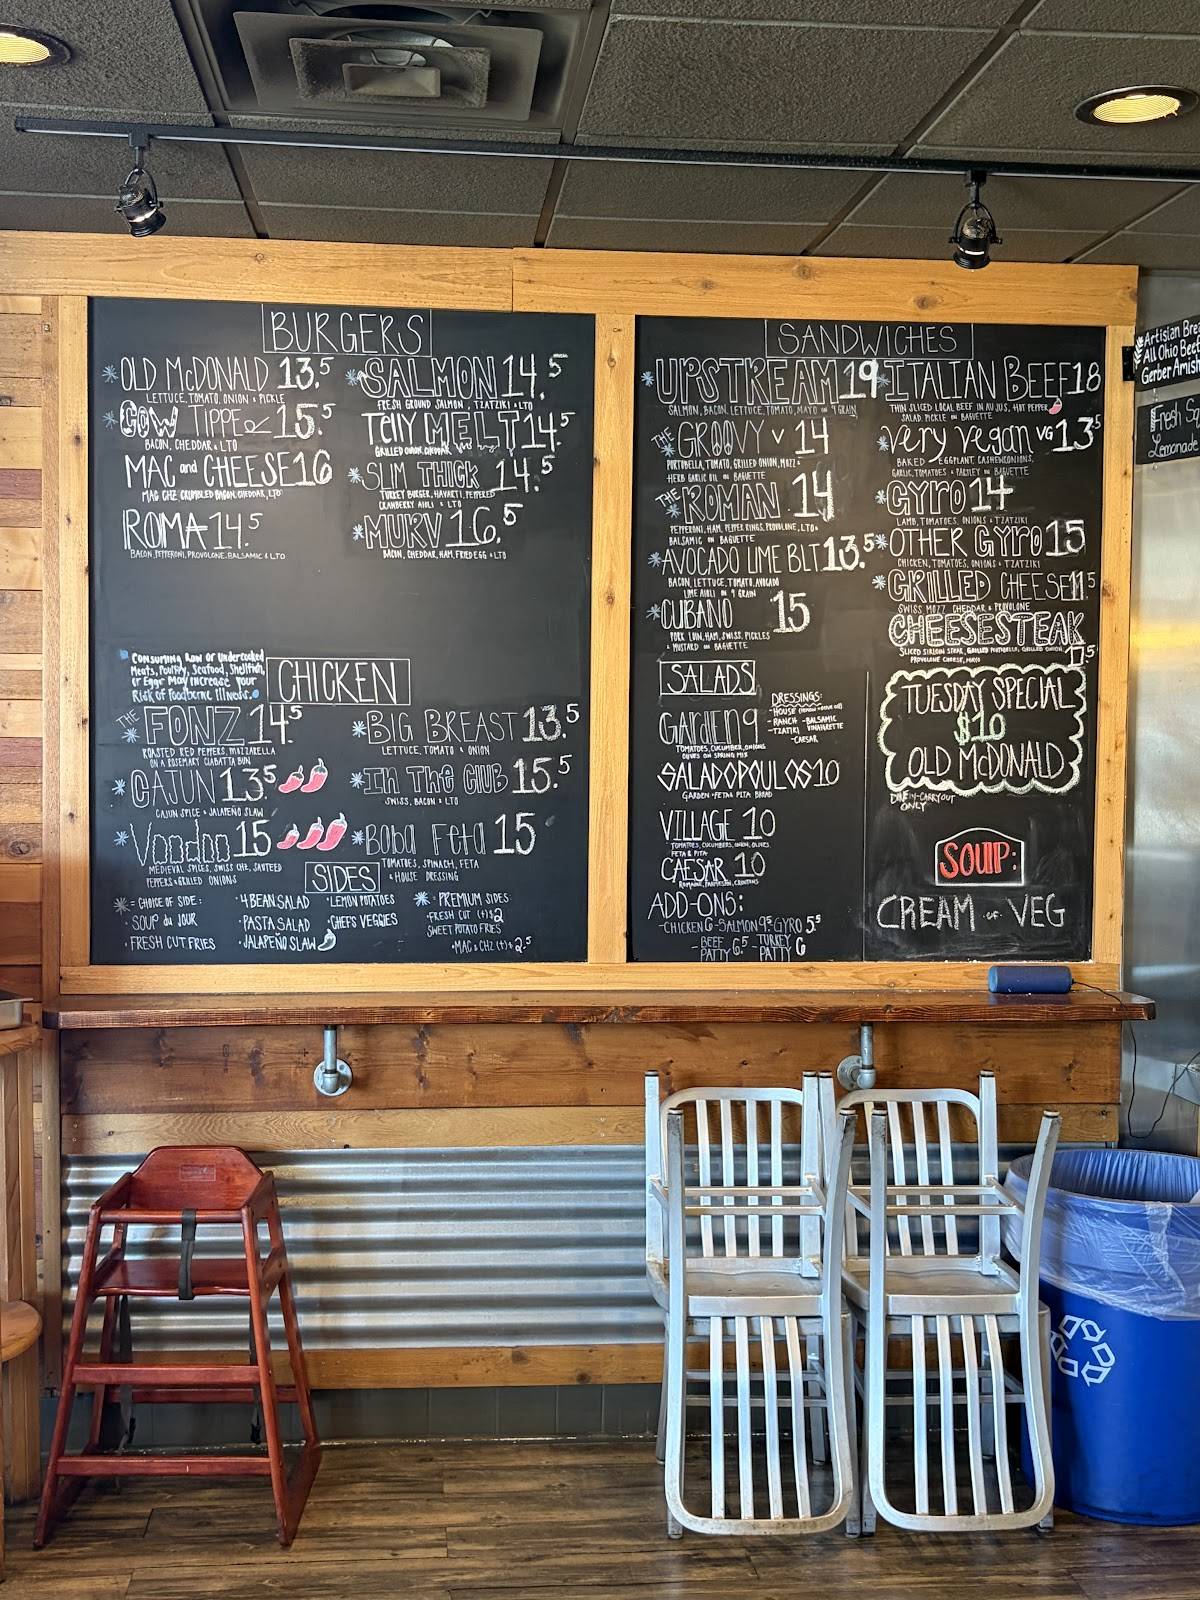 BURGERS
*OLD McDONALD 13.5
LETTUCE, TOMATO, ONION & PICKLE
*COW TIPPER 15.5
BACON, CHEDDAR & LTO
MAC and CHEESE 16
MAC CHZ CRUMBLED BACON, CHEDDAR, LTO
ROMA 14.5
BACON, PEPPERONI, PROVOLONE, BALSAMIC & LTO
*SALMON 14.5
FRESH GROUND SALMON, TZATZIKI & LTO
Telly MELT 14.5
GRILLED ONION, CHEDDAR
*SLIM THICK 14.5
TURKEY BURGER, HAVARTI, PEPPERED
CRANBERRY AIOLI & LTO
*MURV 16.5
BACON, CHEDDAR, HAM, FRIED EGG & LTO
Consuming Raw or Undercooked
Meats, Poultry, Seafood, Shellfish,
or Eggs May increase Your
Risk of Foodborne Illness.
CHICKEN
*THE FONZ 14.5
ROASTED RED PEPPERS, MOZZARELLA
ON A ROSEMARY CIABATTA BUN
*CAJUN 13.5
CAJUN SPICE & JALAPEÑO SLAW
*Voodoo 15
MEDIEVAL SPICES, SWISS CHZ, SAUTEED
PEPPERS & GRILLED ONIONS
*BIG BREAST 13.5
LETTUCE, TOMATO & ONION
*In The CLUB 15.5
SWISS, BACON & LTO
*Boba Feta 15
TOMATOES, SPINACH, FETA
& HOUSE DRESSING
SIDES
*= CHOICE OF SIDE:
· SOUP du JOUR
· FRESH CUT FRIES
· 4 BEAN SALAD
· PASTA SALAD
· JALAPEÑO SLAW
· LEMON POTATOES
· CHEFS VEGGIES
* · PREMIUM SIDES·
· FRESH CUT (+)$2
SWEET POTATO FRIES
· MAC & CHZ (+)$2.5
SANDWICHES
*UPSTREAM 19
SALMON, BACON, LETTUCE, TOMATO, MAYO on 9 GRAIN
*THE GROOVY V 14
PORTOBELLA, TOMATO, GRILLED ONION, MOZZ &
HERB GARLIC OIL on BAGUETTE
*THE ROMAN 14
PEPPERONI, HAM, PEPPER RINGS, PROVOLONE, LTO &
BALSAMIC on BAGUETTE
*AVOCADO LIME BLT 13.5
BACON, LETTUCE, TOMATO, AVOCADO
LIME AIOLI on 9 GRAIN
*CUBANO 15
PORK LOIN, HAM, SWISS, PICKLES
& MUSTARD on BAGUETTE
*ITALIAN BEEF 18
THIN SLICED LOCAL BEEF IN AU JUS, HOT PEPPER
SALAD, PICKLE on BAGUETTE
*Very Vegan VG 13.5
BAKED EGGPLANT, CASHEW, ONIONS,
GARLIC, TOMATOES & PARSLEY on BAGUETTE
*GYRO 14
LAMB, TOMATOES, ONIONS & TZATZIKI
*OTHER GYRO 15
CHICKEN, TOMATOES, ONIONS & TZATZIKI
*GRILLED CHEESE 11.5
SWISS MOZZ CHEDDAR & PROVOLONE
CHEESESTEAK
SLICED SIRLOIN STEAK, GRILLED PORTOBELLO, GRILLED ONION,
PROVOLONE CHEESE, MAYO
SALADS
GARDEN 9
TOMATOES, CUCUMBER, ONIONS
OLIVES ON SPRING MIX
SALADOPOULOS 10
GARDEN + FETA & PITA BREAD
VILLAGE 10
TOMATOES, CUCUMBERS, ONION, OLIVES,
FETA & PITA
CAESAR 10
ROMAINE, PARMESEAN, CROUTONS
DRESSINGS:
- HOUSE
- RANCH - BALSAMIC
- TZATZIKI VINAIGRETTE
- CAESAR
ADD-ONS:
- CHICKEN 6 - SALMON 9.5 - GYRO 5.5
- BEEF PATTY 6.5 - TURKEY PATTY 6
TUESDAY SPECIAL
$10
OLD McDONALD
DINE IN - CARRY OUT
ONLY
SOUP:
CREAM of VEG
Artisan Bre
All Ohio Beef
Gerber Amish
Fresh Sq
Lemonade